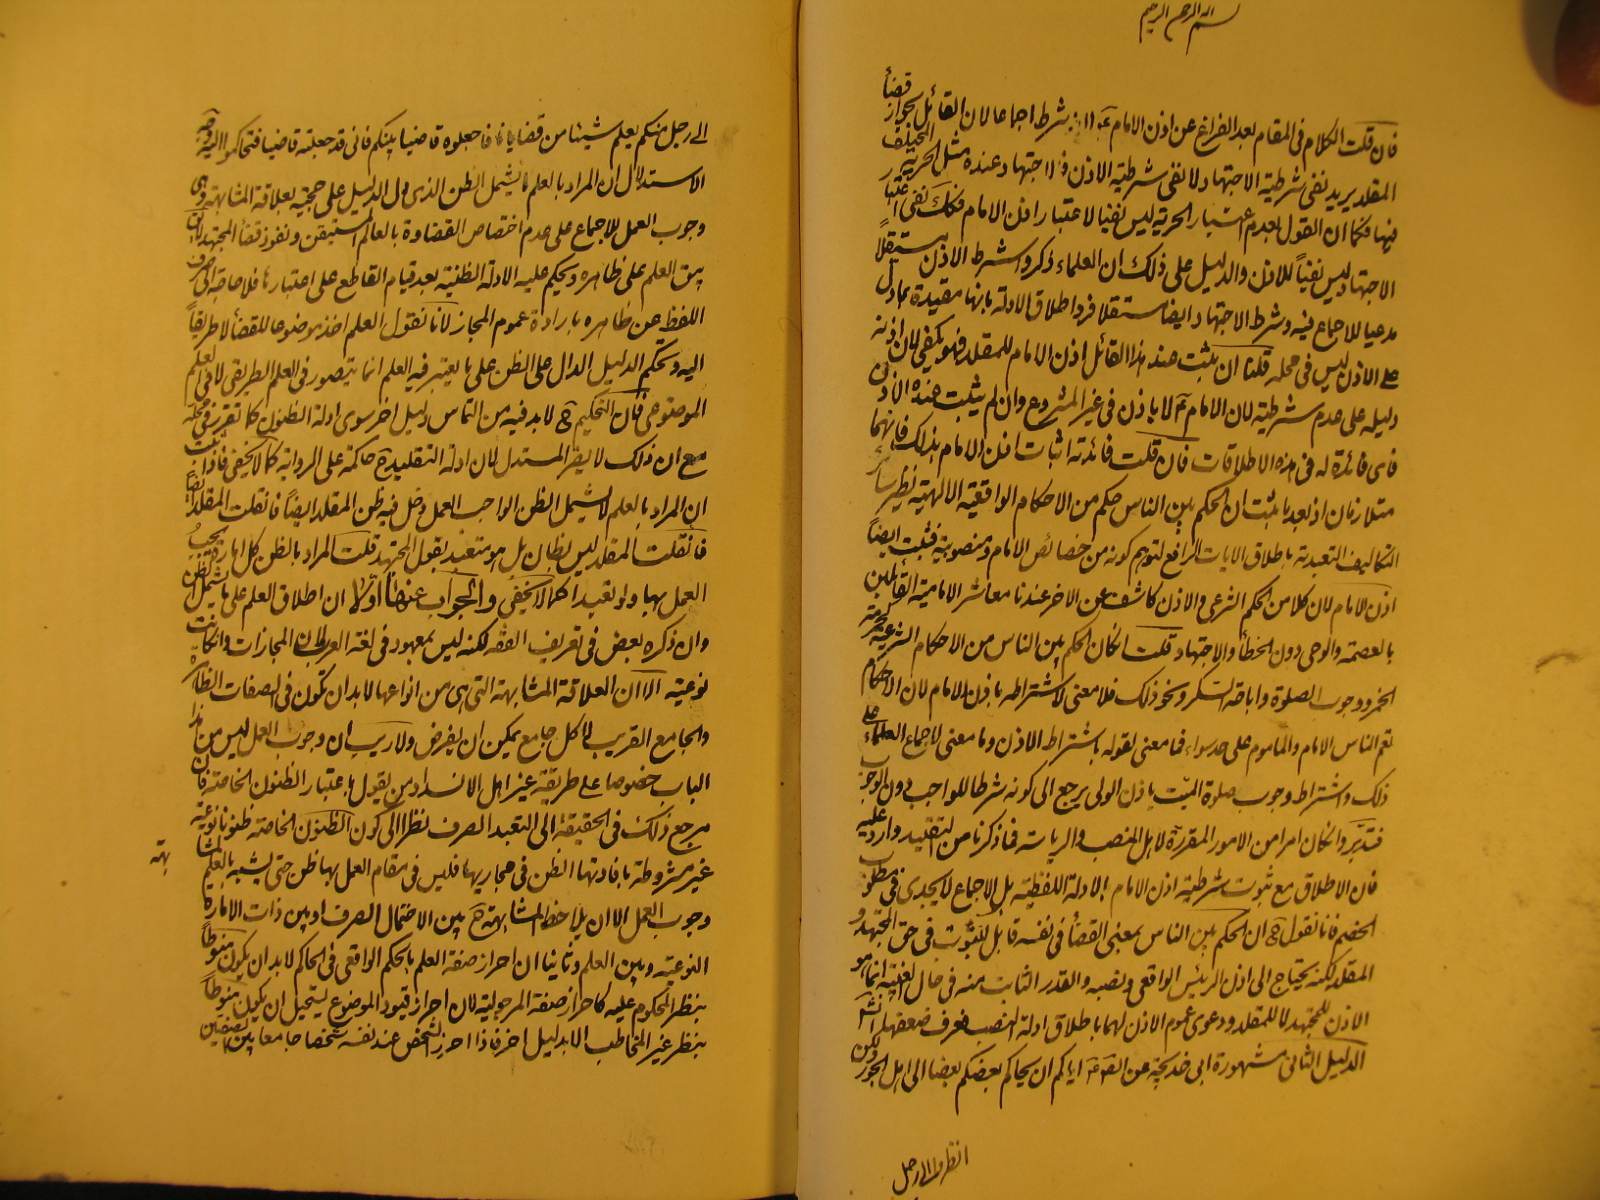 بسم الله الرحمن الرحيم
فان قلت الكلام فى المقام بعد الفراغ عن اذن الامام شرط اجماعا لان القائل بجواز قضأ
المقلد يريد نفى شرطية الاجتهاد لا نفى شرطية الاذن فالاجتهاد عنده مثل الحرية المختلف
فيها فكما ان القول بعدم اعتبار الحرية ليس نفيا لاعتبار اذن الامام فكك نفى اعتبار
الاجتهاد ليس نفياً للاذن والدليل على ذلك ان العلماء ذكروا شرط الاذن مستقلاً
مدعيا للاجماع فيه وشرط الاجتهاد ايضا مستقلا فرد اطلاق الادلة بانها مقيدة بمادل
على الاذن ليس فى محله قلنا ان ثبت عند هذا القائل اذن الامام للمقلد فهو يكفى لان اذنه
دليله على عدم شرطية لان الامام ع لا ياذن فى غير المشروع وان لم يثبت عنده الاذن
فاى فائدة له فى هذه الاطلاقات فان قلت فائدته اثبات اذن الامام بذلك فانهما
متلازمان اذ بعد ما ثبت ان الحكم بين الناس حكم من الاحكام الواقعية الالهية نظير سائر
التكاليف التعبدية باطلاق الايات الرافع لتوهم كونه من خصائص الامام ومنصوبيه فثبت ايضاً
اذن الامام لان كلا من الحكم الشرعى والاذن كاشف عن الاخر عندنا معاشر الامامية القائلين
بالعصمة والوحى دون الخطأ والاجتهاد قلت ان كان الحكم بين الناس من الاحكام الشرعية كحرمة
الخمر ووجوب الصلوة واباحة السكر ونحو ذلك فلا معنى لاشتراطه باذن الامام لان الاحكام
تعم الناس الامام والماموم على حد سواء فما معنى لقوله باشتراط الاذن وما معنى لاجماع العلماء على
ذلك واشتراط وجوب صلوة الميت باذن الولى يرجع الى كونه شرطا للواجب دون الوجوب
فتدبر وان كان امرا من الامور المقررة لاهل المنصب والرياسة فما ذكرنا من التقييد وارد عليه
فان الاطلاق مع ثبوت شرطية اذن الامام بالادلة اللفظية بل الاجماع لا يجدى فى مطلوب
الخصم فانا نقول ح ان الحكم بين الناس بمعنى القضأ فى نفسه قابل للثبوت فى حق المجتهد و
المقلد لكنه يحتاج الى اذن الرئيس الواقعى ونصبه والقدر الثابت منه فى حال الغيبة انما هو
الاذن للمجتهد لا للمقلد ودعوى عموم الاذن لهما باطلاق ادلة النصب نعرف ضعفها انش
الدليل الثانى مشهورة ابى خديجة عن الصم ع اياكم ان يحاكم بعضكم بعضا الى اهل الجور ولكن
انظروا الى رجل
الى رجل منكم يعلم شيئا من قضايانا فاجعلوه قاضيا بينكم فانى قد جعلته قاضيا فتحاكموا اليه وجه
الاستدلال ان المراد بالعلم ما يشمل الظن الذى دل الدليل على حجيته بعلاقة المشابهة وهى
وجوب العمل للاجماع على عدم اختصاص القضاوة بالعالم المتيقن ونفوذ قضأ المجتهد لان
يبقى العلم على ظاهره ويحكم عليه الادلة الظنية بعد قيام القاطع على اعتبارها فلا حاجة الى صرف
اللفظ عن ظاهره بارادة عموم المجاز لانا نقول العلم اخذ موضوعا للقضأ لا طريقاً
اليه وتحكم الدليل الدال على الظن على ما يعتبر فيه العلم انما يتصور فى العلم الطريقى لا فى العلم
الموضوعى فان التحكيم ح لابد فيه من التماس دليل اخر سوى ادلة الظنون كما تقرر فى محله
مع ان ذلك لا يضر المستدل لان ادلة التقليد ح حاكمة على الرواية كما لا يخفى فاذا ثبت
ان المراد بالعلم ما يشمل الظن الواجب العمل دخل فيه ظن المقلد ايضاً فان قلت المقلد ايضا
فان قلت المقلد ليس بظان بل هو متعبد بقول المجتهد قلت المراد بالظن كل امارة يجب
العمل بها ولو تعبدا كما لا يخفى والجواب عنها اولا ان اطلاق العلم على ما يشمل الظن
وان ذكره بعض فى تعريف الفقه لكنه ليس بمعهود فى لغة العرب لان المجازات وان كانت
نوعية الا ان العلاقة المشابهة التى هى من انواعها لابد ان تكون فى الصفات الظاهرة
والجامع القريب لا كل جامع يمكن ان يفرض ولا ريب ان وجوب العمل ليس من هذا
الباب خصوصا على طريقة غير اهل الانسداد من يقول باعتبار الظنون الخاصة فان
مرجع ذلك فى الحقيقة الى التعبد الصرف نظرا الى كون الظنون الخاصة ظنونا نوعية
غير مشروطة بافادتها الظن فى مجاريها فليس فى مقام العمل بها ظن حتى يشبه بالعلم المشا
بهة
وجوب العمل الا ان يلاحظ المشابهة ح بين الاحتمال الصرف او بين ذات الامارة
النوعية وبين العلم وثانيا ان احراز صفة العلم بالحكم الواقعى فى الحاكم لابد ان يكون منوطاً
بنظر المحكوم عليه كاحراز صفة الرجولية لان احراز قيود الموضوع يستحيل ان يكون منوطاً
بنظر غير المخاطب الا بدليل اخر فاذا احرز الشخص عند نفسه شخصا جامعا بين الصفتين